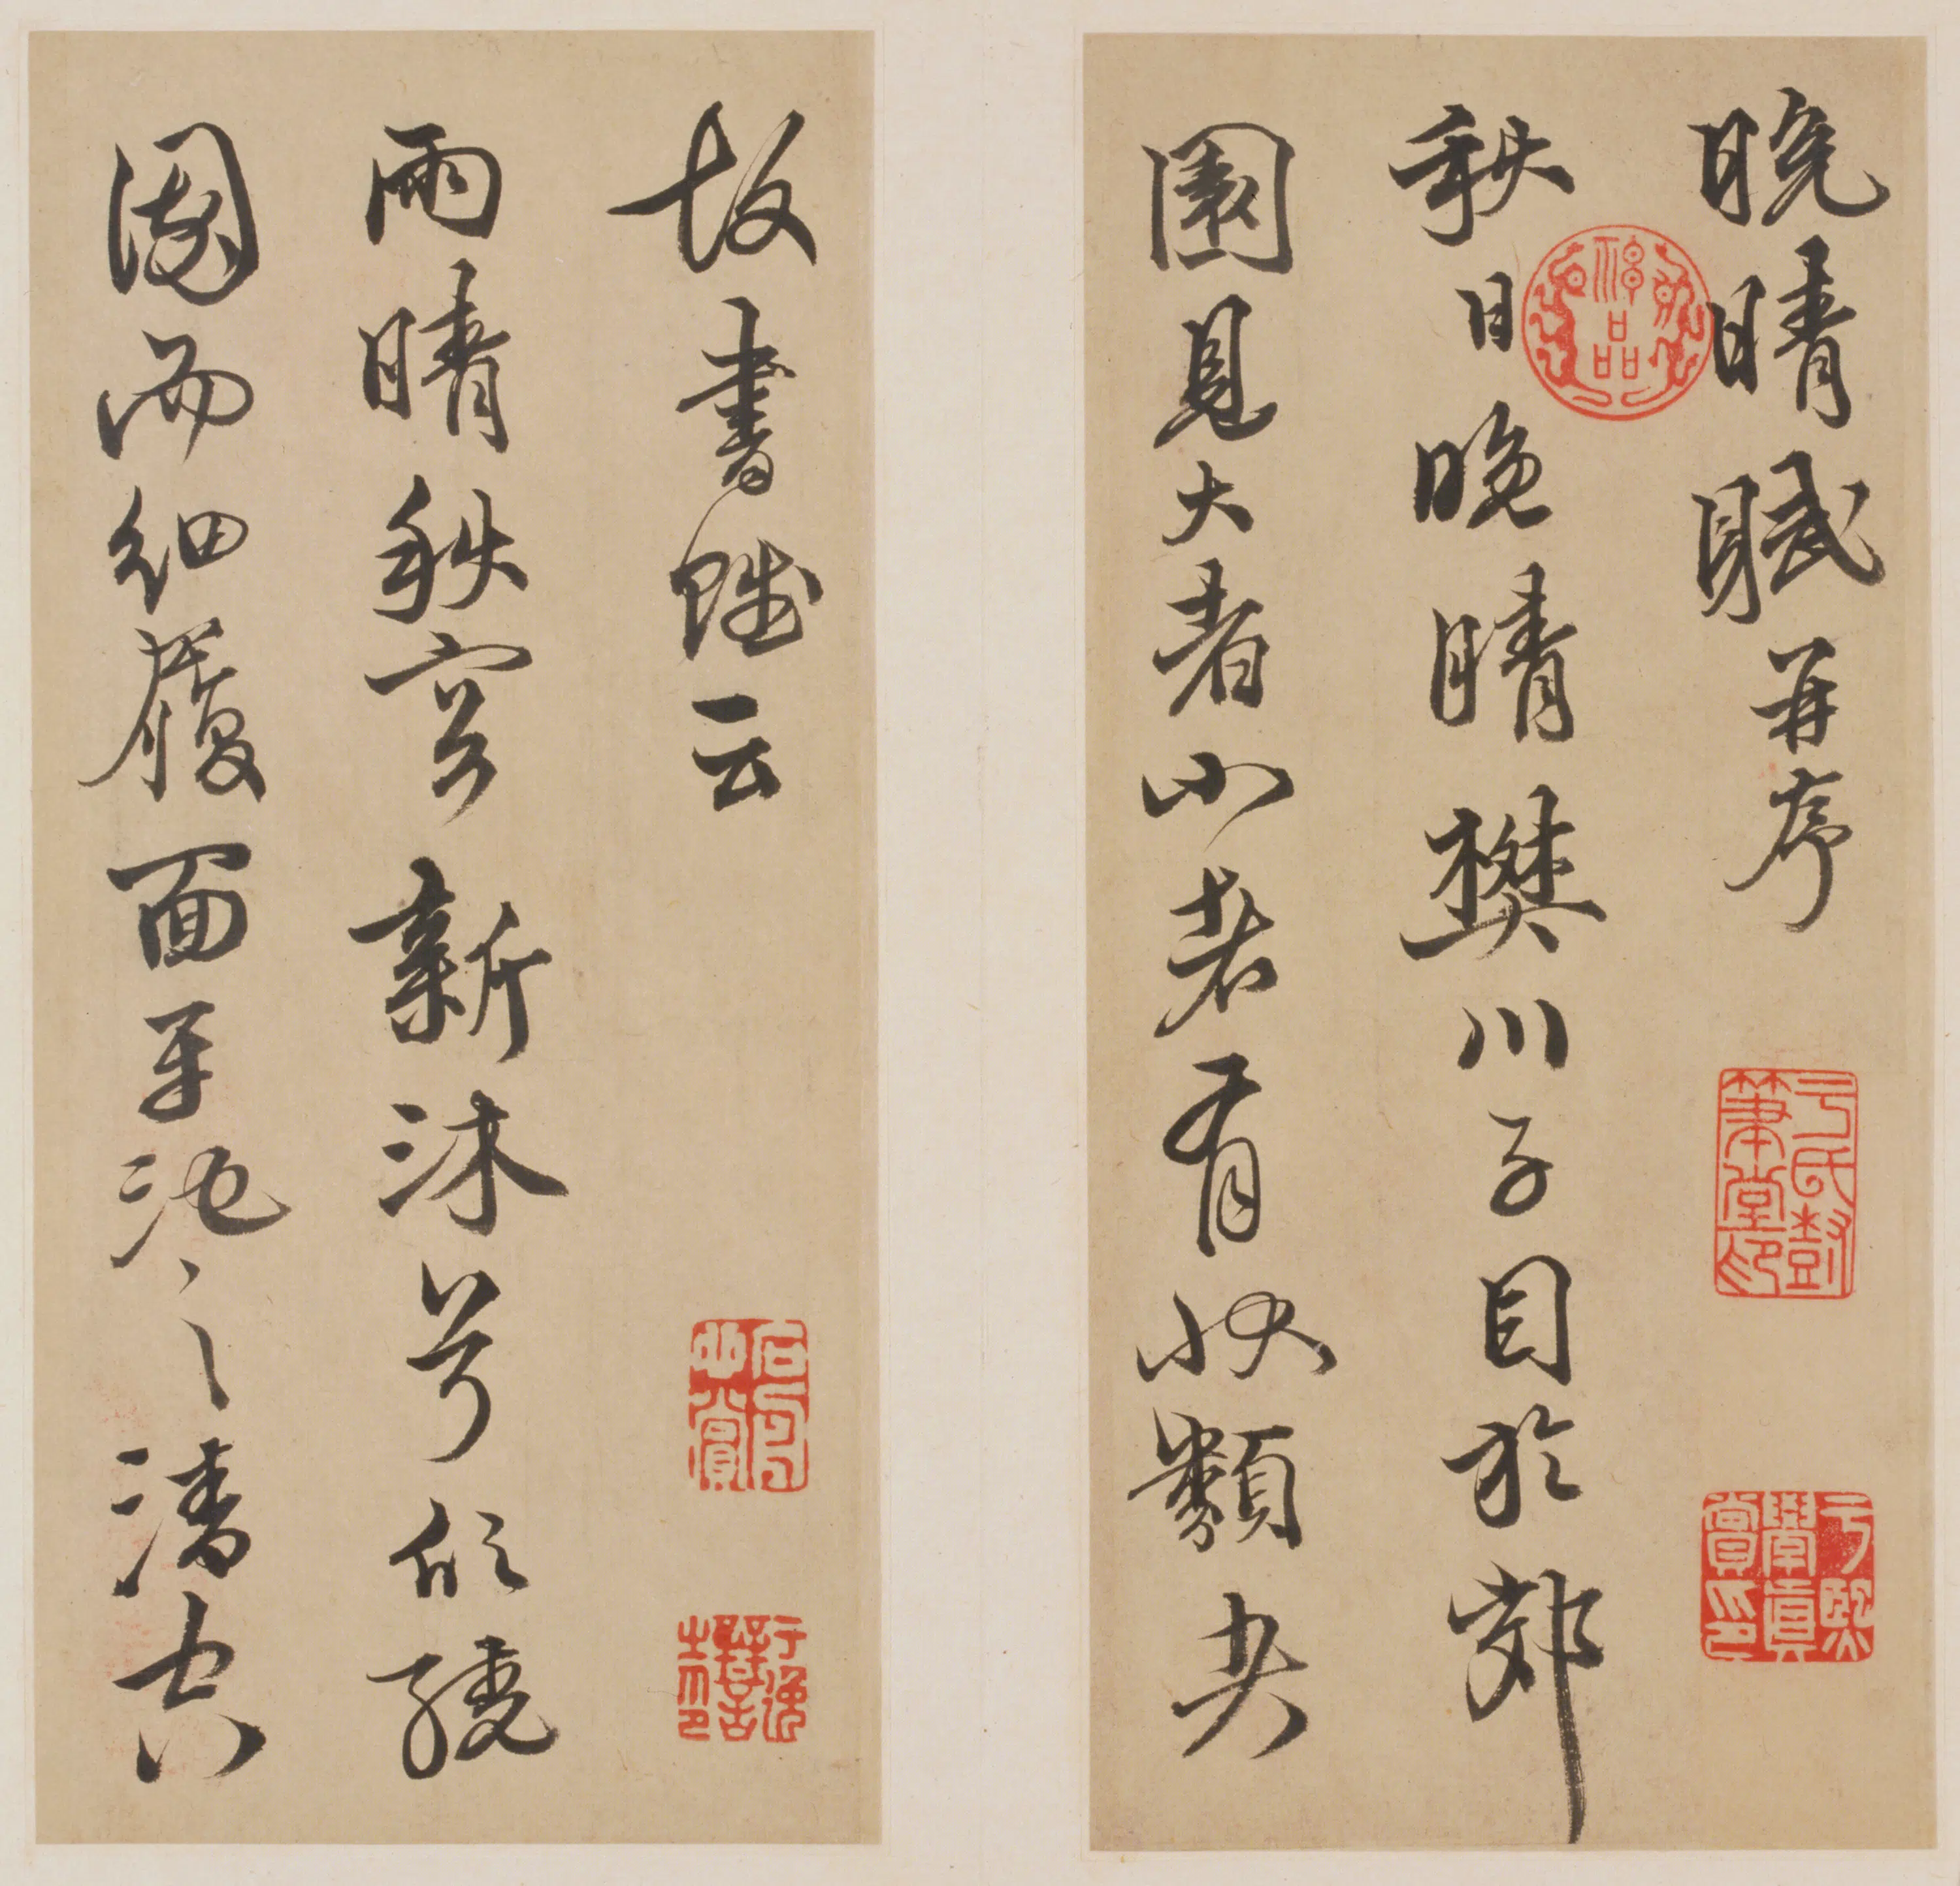 晚晴賦并序
秋日晚晴樊川子目於郊
園見大者小者有狀類
故書賦云
雨晴秋容新沐兮欣繞
園而細履面平池之清空